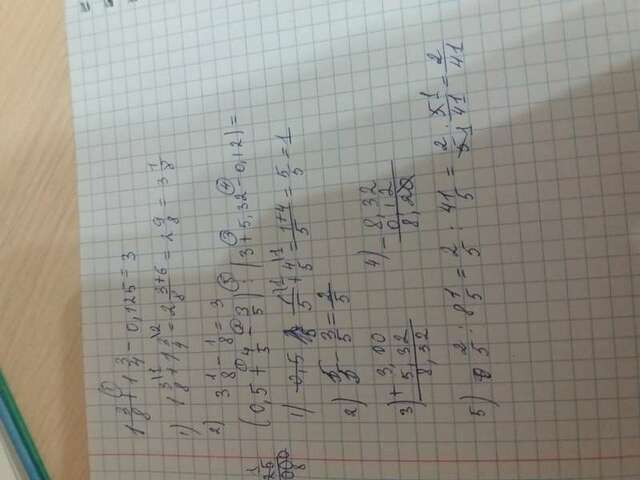 1 3/8 + 1 3/4 - 0,125 = 3
1) 1 3/8 + 1 3/4 = 2 3+6/8 = 2 9/8 = 3 1/8
2) 3 1/8 - 1/8 = 3
(0,5 + 4/5 - 3/5) : (3 + 5,32 - 0,12) =
1) 0,5 1/5 + 4/5 = 1+4/5 = 5/5 = 1
2) 5/5 - 3/5 = 2/5
3) + 3,00
5,32
8,32
4) - 8,32
0,12
8,20
5) 2/5 : 8 1/5 = 2/5 : 41/5 = 2/5 · 5/41 = 2/41